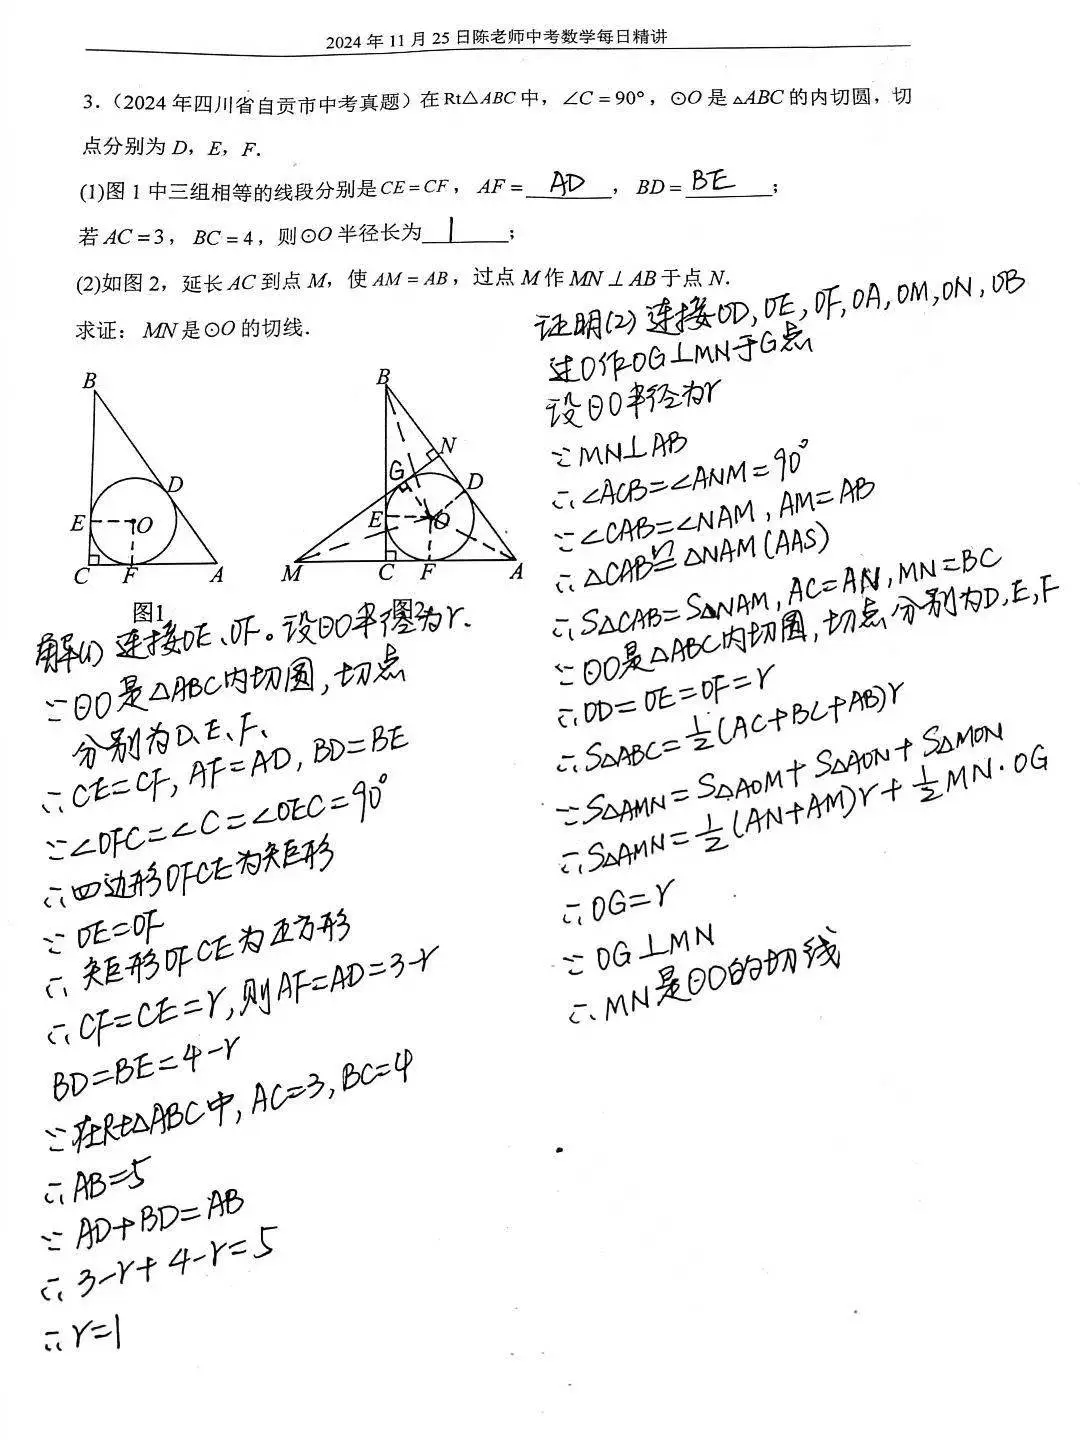 2024年11月25日陈老师中考数学每日精讲
3.（2024年四川省自贡市中考真题）在Rt△ABC中，∠C=90°，⊙O是△ABC的内切圆，切
点分别为D，E，F.
(1)图1中三组相等的线段分别是CE=CF，AF=AD，BD=BE；
若AC=3，BC=4，则⊙O半径长为1；
(2)如图2，延长AC到点M，使AM=AB，过点M作MN⊥AB于点N.
求证：MN是⊙O的切线.
B
D
E
O
C
F
A
图1
B
N
G
D
E
O
M
C
F
A
图2
解(1) 连接OE、OF。设⊙O半径为r.
∵⊙O是△ABC内切圆，切点
分别为D、E、F、
∴CE=CF, AF=AD, BD=BE
∵∠OFC=∠C=∠OEC=90°
∴四边形OFCE为矩形
∵OE=OF
∴矩形OFCE为正方形
∴CF=CE=r,则AF=AD=3-r
BD=BE=4-r
∵在Rt△ABC中, AC=3, BC=4
∴AB=5
∵AD+BD=AB
∴3-r+4-r=5
∴r=1
证明(2) 连接OD,OE,OF,OA,OM,ON,OB
过O作OG⊥MN于G点
设⊙O半径为r
∵MN⊥AB
∴∠ACB=∠ANM=90°
∵∠CAB=∠NAM, AM=AB
∴△CAB≌△NAM(AAS)
∴S△CAB=S△NAM, AC=AN, MN=BC
∵⊙O是△ABC内切圆,切点分别为D,E,F
∴OD=OE=OF=r
∴S△ABC=½(AC+BC+AB)r
∵S△AMN=S△AOM+S△AON+S△MON
∴S△AMN=½(AN+AM)r+½MN·OG
∴OG=r
∵OG⊥MN
∴MN是⊙O的切线